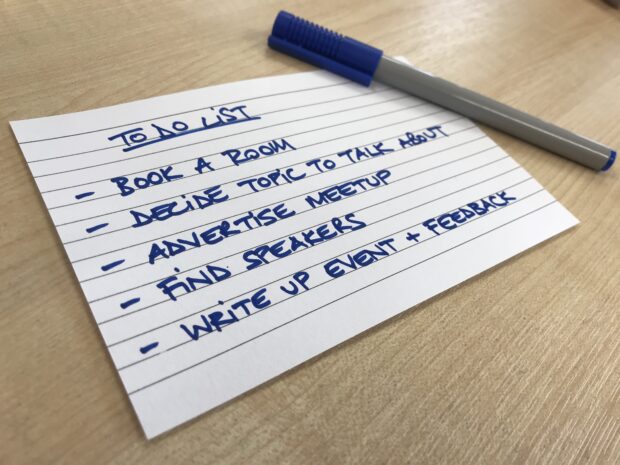 TO DO LIST
- BOOK A ROOM
- DECIDE TOPIC TO TALK ABOUT
- ADVERTISE MEETUP
- FIND SPEAKERS
- WRITE UP EVENT + FEEDBACK